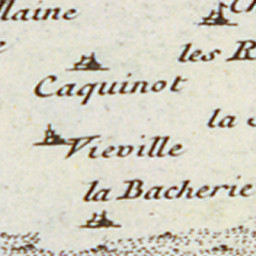 llaine
les R
Caquinot
la
Vieville
la Bacherie